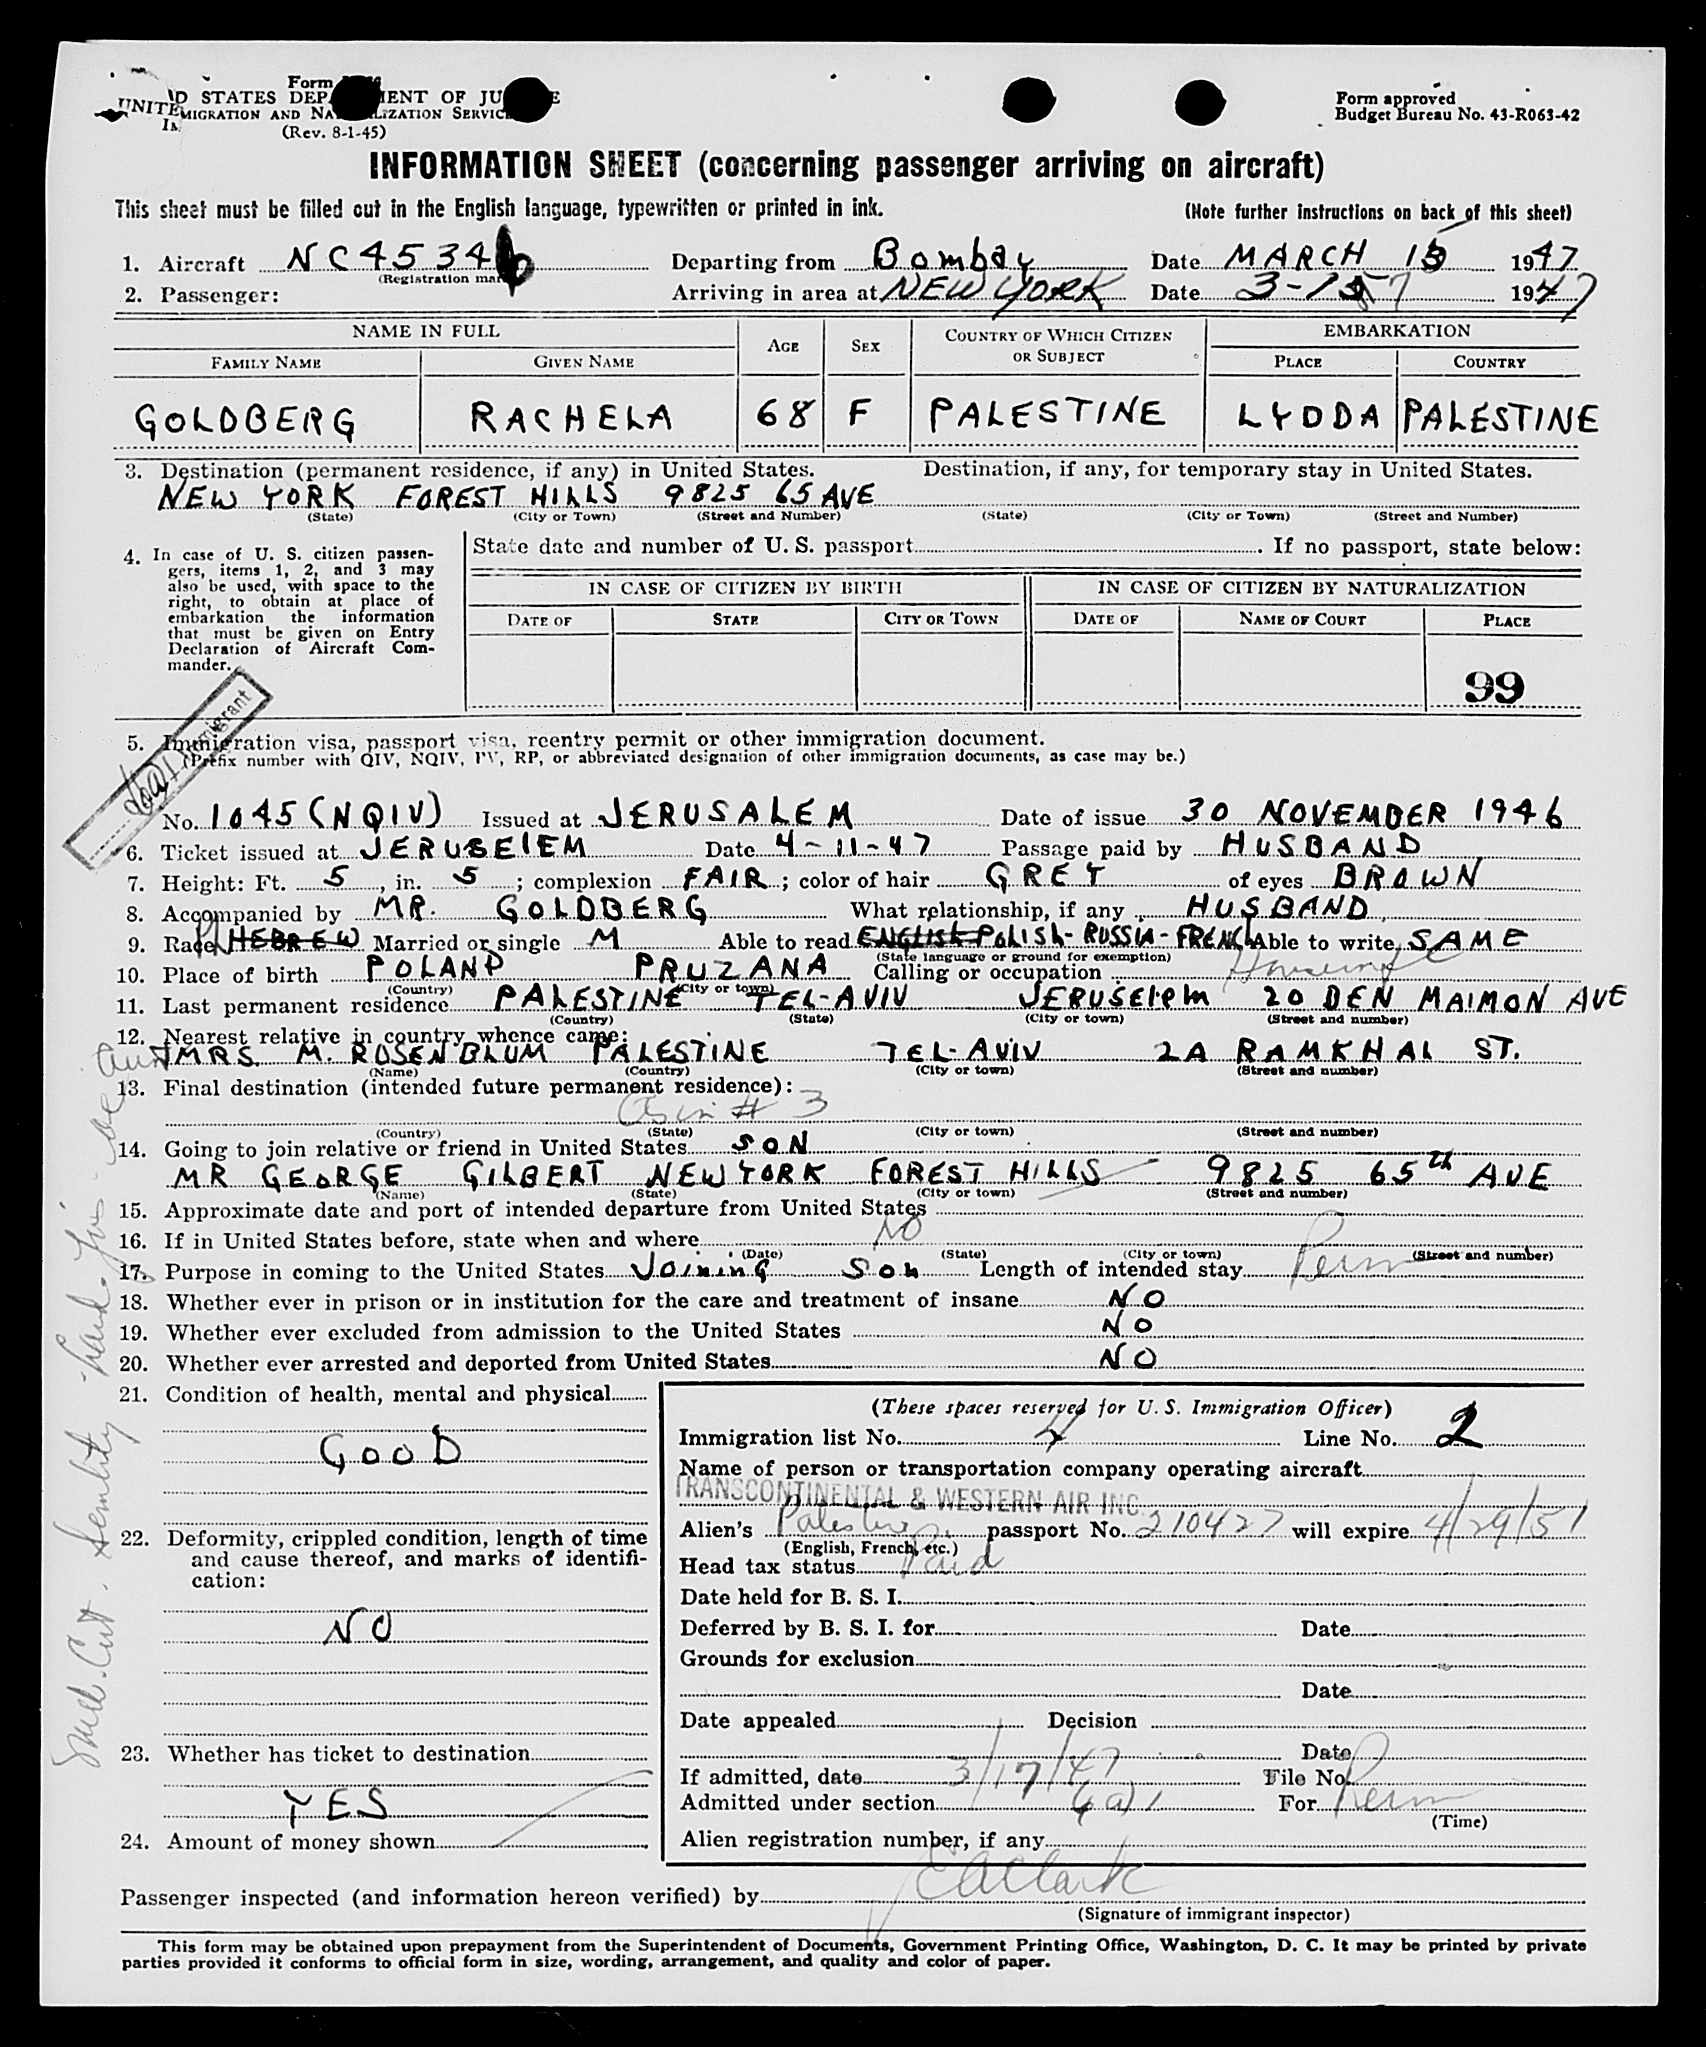 Form
UNITED STATES DEPARTMENT OF JUSTICE
IMMIGRATION AND NATURALIZATION SERVICE
(Rev. 8-1-45)
Form approved
Budget Bureau No. 43-R063-42
INFORMATION SHEET (concerning passenger arriving on aircraft)
This sheet must be filled out in the English language, typewritten or printed in ink. (Note further instructions on back of this sheet)
1. Aircraft NC45346 Departing from Bombay Date MARCH 15 1947
(Registration mark)
2. Passenger: Arriving in area at NEW YORK Date 3-17 1947
NAME IN FULL AGE SEX COUNTRY OF WHICH CITIZEN OR SUBJECT EMBARKATION
FAMILY NAME GIVEN NAME PLACE COUNTRY
GOLDBERG RACHELA 68 F PALESTINE LYDDA PALESTINE
3. Destination (permanent residence, if any) in United States. Destination, if any, for temporary stay in United States.
NEW YORK FOREST HILLS 9825 65 AVE
(State) (City or Town) (Street and Number) (State) (City or Town) (Street and Number)
4. In case of U. S. citizen passen-
gers, items 1, 2, and 3 may
also be used, with space to the
right, to obtain at place of
embarkation the information
that must be given on Entry
Declaration of Aircraft Com-
mander.
State date and number of U. S. passport. If no passport, state below:
IN CASE OF CITIZEN BY BIRTH IN CASE OF CITIZEN BY NATURALIZATION
DATE OF STATE CITY OR TOWN DATE OF NAME OF COURT PLACE
99
5. Immigration visa, passport visa, reentry permit or other immigration document.
(Prefix number with QIV, NQIV, PV, RP, or abbreviated designation of other immigration documents, as case may be.)
Immigrant
No. 1045 (NQIV) Issued at JERUSALEM Date of issue 30 NOVEMBER 1946
6. Ticket issued at JERUSElEM Date 4-11-47 Passage paid by HUSBAND
7. Height: Ft. 5, in. 5; complexion FAIR; color of hair GREY of eyes BROWN
8. Accompanied by MR. GOLDBERG What relationship, if any HUSBAND
9. Race HEBREW Married or single M Able to read ENGLISH POLISH-RUSSIA-FRENCH Able to write SAME
(State language or ground for exemption)
10. Place of birth POLAND PRUZANA Calling or occupation Housewife
(Country) (City or town)
11. Last permanent residence PALESTINE TEL-AVIV JERUSElEM 20 BEN MAIMON AVE
(Country) (State) (City or town) (Street and number)
12. Nearest relative in country whence came:
Aunt MRS. M. ROSENBLUM PALESTINE TEL-AVIV 2A RAMKHAL ST.
(Name) (Country) (City or town) (Street and number)
13. Final destination (intended future permanent residence):
As in # 3
(Country) (State) (City or town) (Street and number)
14. Going to join relative or friend in United States SON
MR GEORGE GILBERT NEW YORK FOREST HILLS 9825 65th AVE
(Name) (State) (City or town) (Street and number)
15. Approximate date and port of intended departure from United States
16. If in United States before, state when and where NO
(Date) (State) (City or town) (Street and number)
17. Purpose in coming to the United States JOINING Son Length of intended stay Perm
18. Whether ever in prison or in institution for the care and treatment of insane NO
19. Whether ever excluded from admission to the United States NO
20. Whether ever arrested and deported from United States NO
21. Condition of health, mental and physical
GOOD
22. Deformity, crippled condition, length of time
and cause thereof, and marks of identifi-
cation:
NO
23. Whether has ticket to destination
YES
24. Amount of money shown
(These spaces reserved for U. S. Immigration Officer)
Immigration list No. 4 Line No. 2
Name of person or transportation company operating aircraft
TRANSCONTINENTAL & WESTERN AIR INC.
Alien's Palestine passport No. 210427 will expire 4/29/51
(English, French, etc.)
Head tax status Paid
Date held for B. S. I.
Deferred by B. S. I. for Date
Grounds for exclusion
Date
Date appealed Decision
Date
If admitted, date 3/17/47 File No.
Admitted under section 6(a)1 For Perm
(Time)
Alien registration number, if any
Med. Cert. Senility
Passenger inspected (and information hereon verified) by EAClark
(Signature of immigrant inspector)
This form may be obtained upon prepayment from the Superintendent of Documents, Government Printing Office, Washington, D. C. It may be printed by private
parties provided it conforms to official form in size, wording, arrangement, and quality and color of paper.